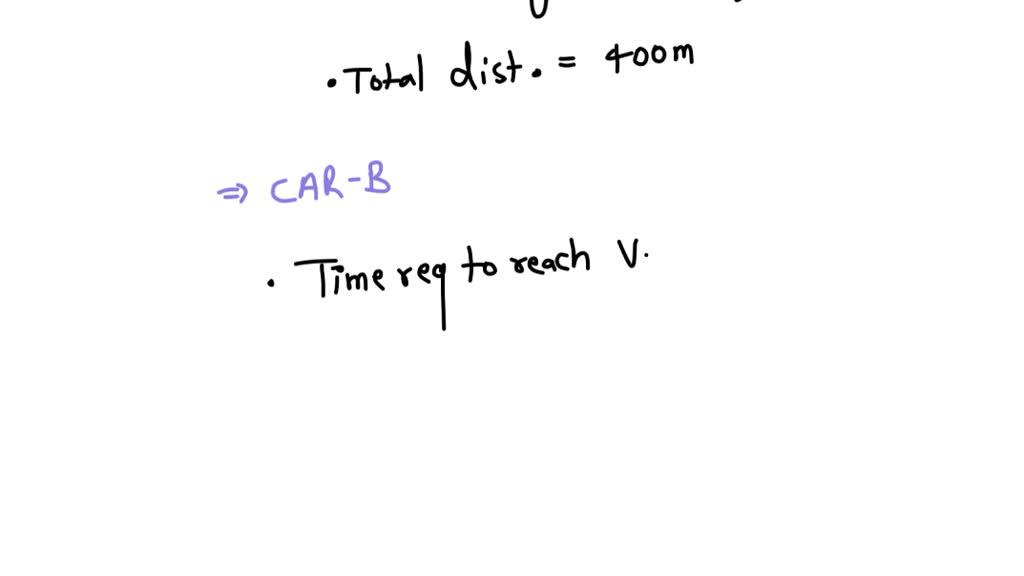 • Total dist. = 400m
⇒ CAR-B
• Time req to reach V.